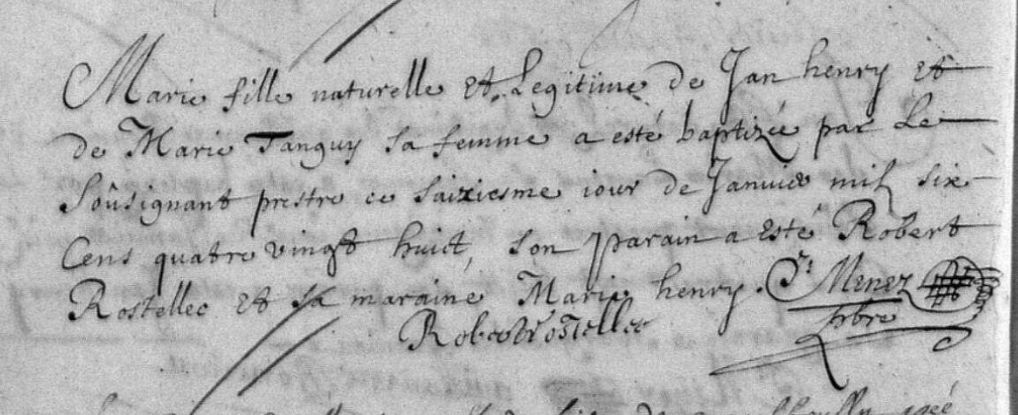 Marie fille naturelle et Legitime de Jan henry et
de Marie Tanguy sa femme a esté baptizée par Le
Soûsignant prestre ce saiziesme iour de Janvier mil six
Cens quatre vingt huict, son parain a esté Robert
Rostellec et sa maraine Marie henry. Menez
Robert rostellec pbre